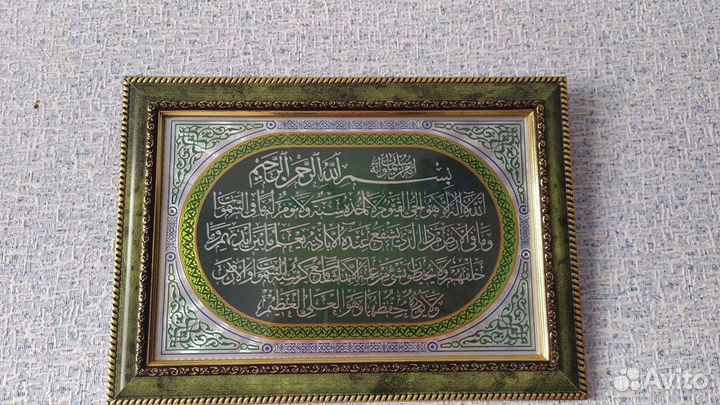 بسم الله الرحمن الرحيم
الله لا اله الا هو الحي القيوم لا تأخذه سنة ولا نوم له ما في السموات
وما في الارض من ذا الذي يشفع عنده الا باذنه يعلم ما بين ايديهم وما
خلفهم ولا يحيطون بشيء من علمه الا بما شاء وسع كرسيه السموات والارض
ولا يؤده حفظهما وهو العلي العظيم
Avito